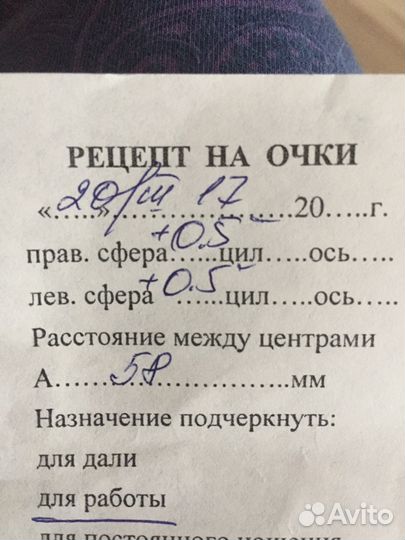 РЕЦЕПТ НА ОЧКИ
«20/III 17.....20.....г.
прав. сфера +0.5 цил.....ось.....
лев. сфера +0.5 .....цил.....ось.....
Расстояние между центрами
А.......58.............мм
Назначение подчеркнуть:
для дали
для работы
для постоянного ношения
Avito